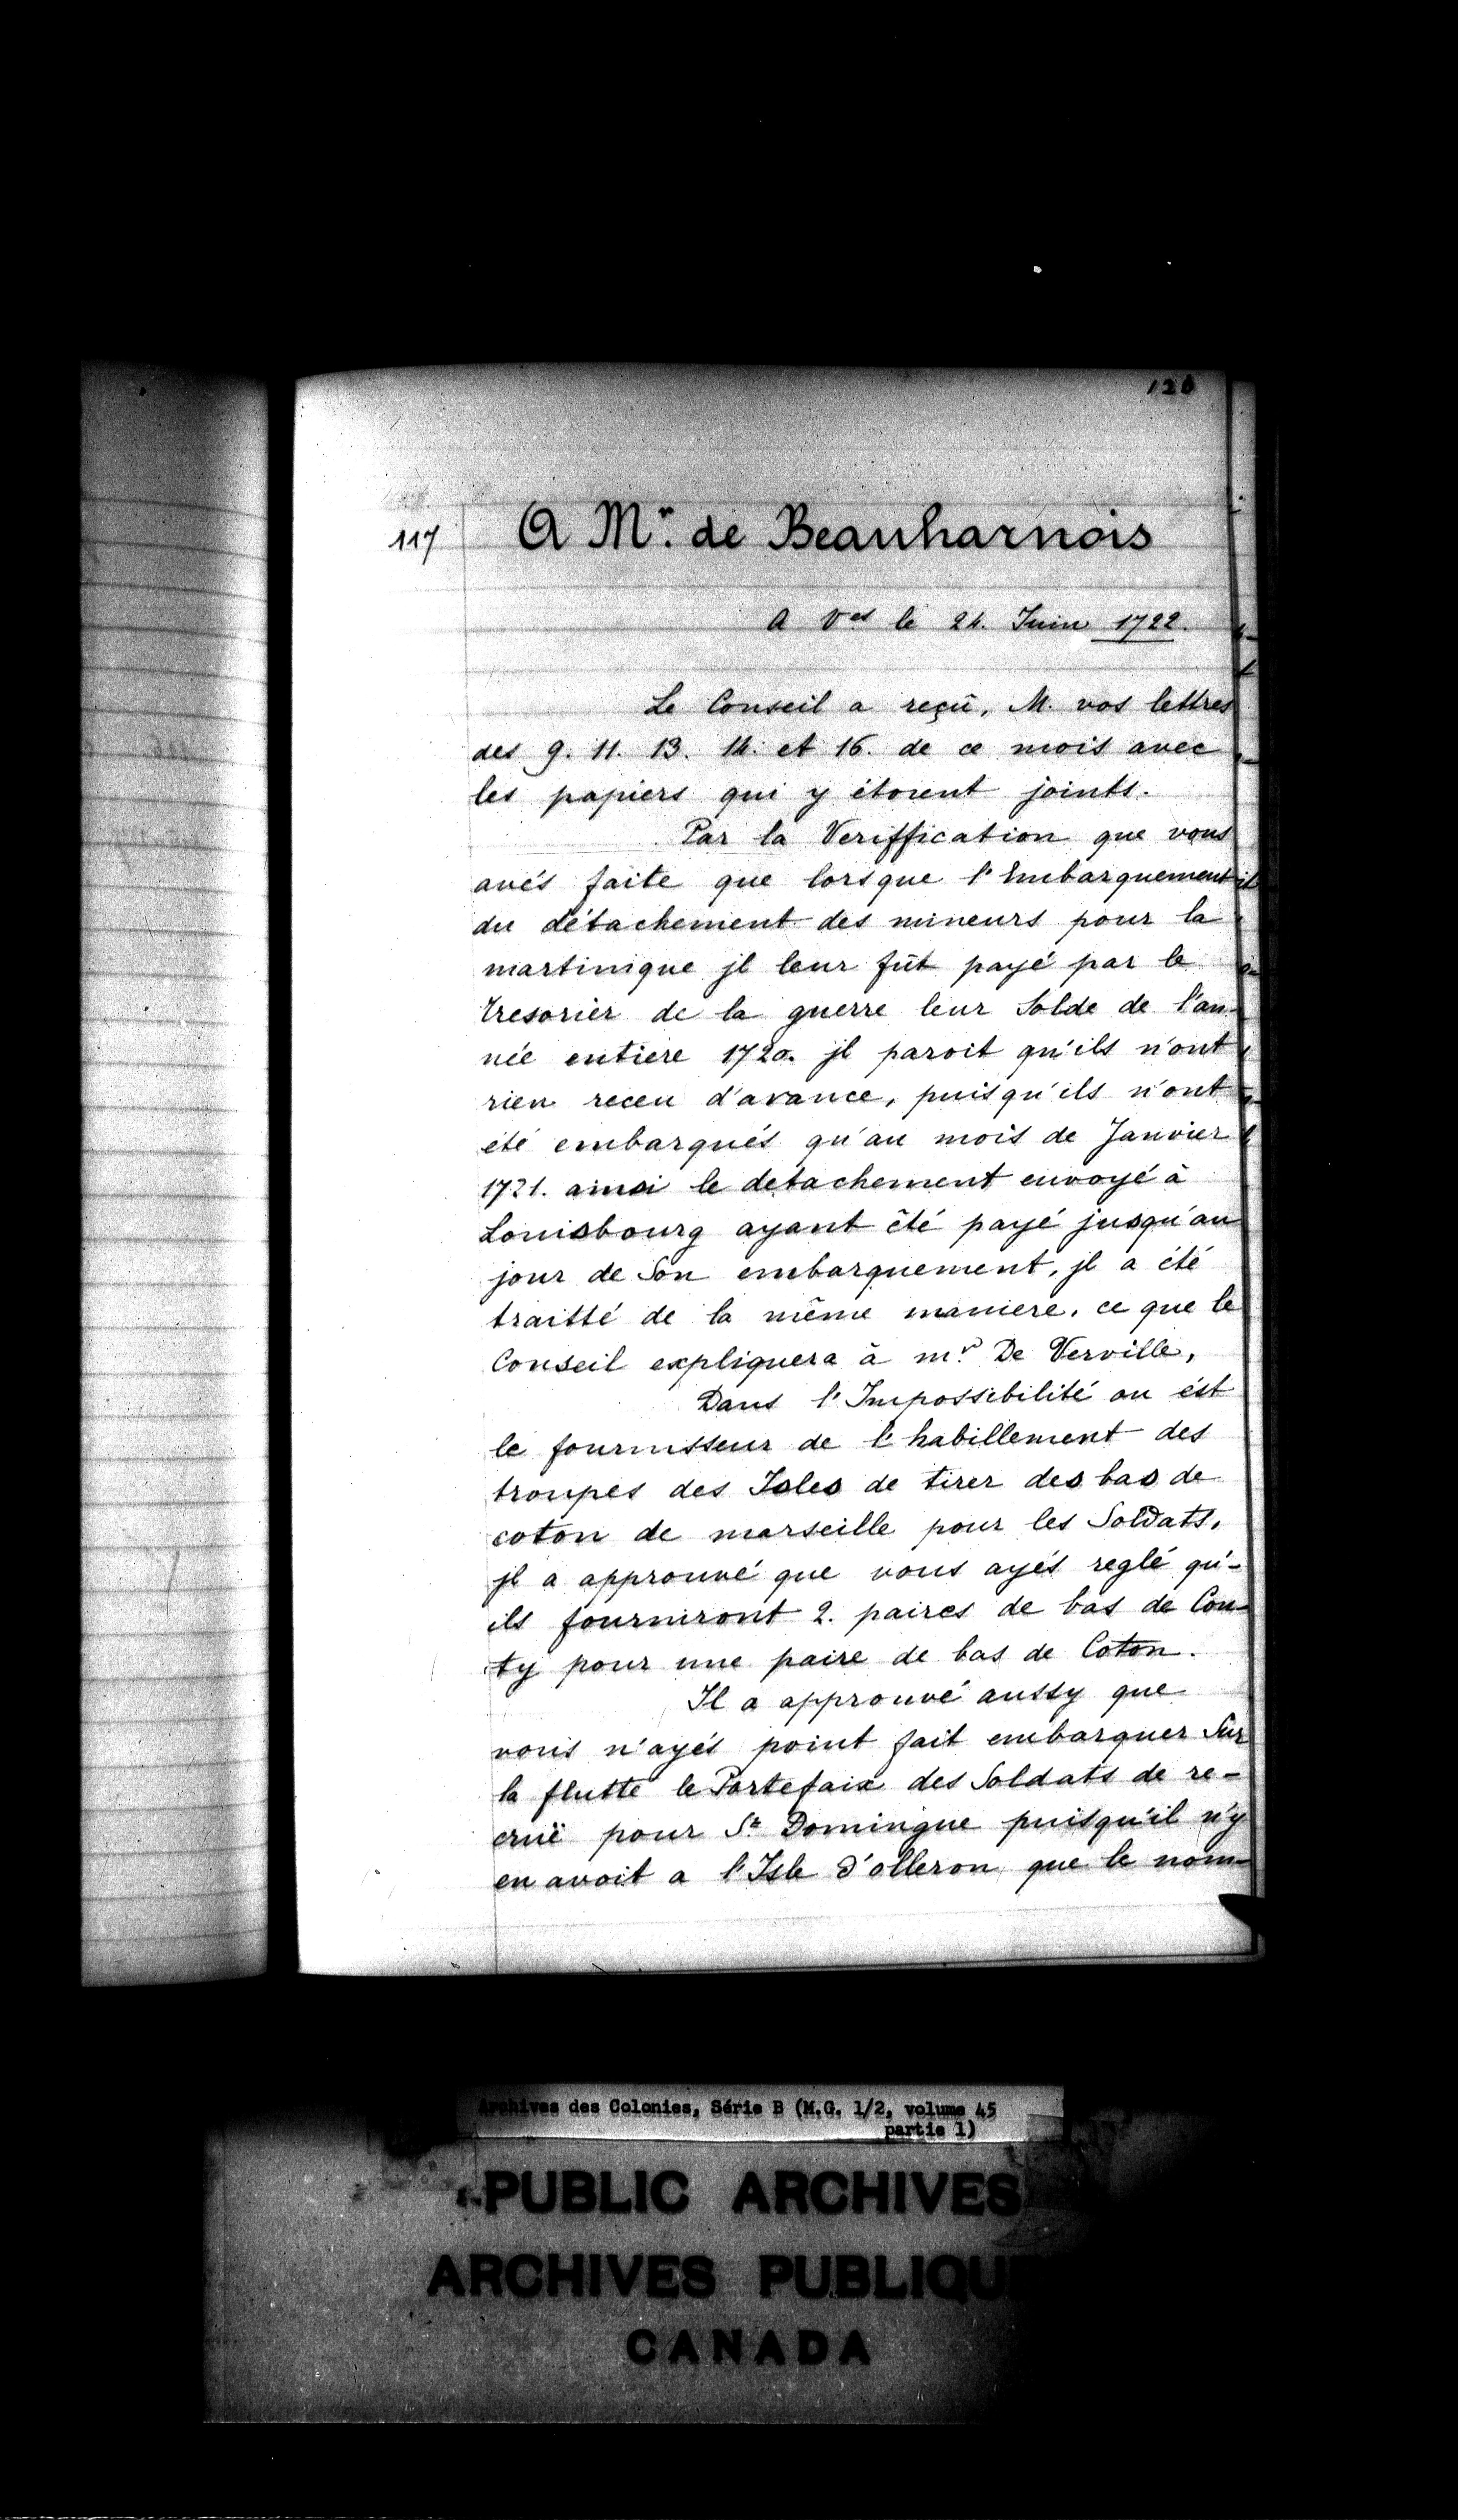 117
A Mr. de Beauharnois
A Ves le 24. Juin 1722.
Le Conseil a reçû, M. vos lettres
des 9. 11. 13. 14. et 16. de ce mois avec
les papiers qui y étoient joints.
Par la Veriffication que vous
avés faite que lorsque l'Embarquement
du détachement des mineurs pour la
martinique jl leur fût payé par le
tresorier de la guerre leur Solde de l'an-
née entiere 1720. jl paroit qu'ils n'ont
rien receu d'avance, puisqu'ils n'ont
été embarqués qu'au mois de Janvier
1721. ainsi le detachement envoyé à
Louisbourg ayant été payé jusqu'au
jour de Son embarquement, jl a été
traitté de la même maniere, ce que le
Conseil expliquera à mr. De Verville,
Dans l'Impossibilité ou ést
le fournisseur de l'habillement des
troupes des Isles de tirer des bas de
coton de marseille pour les Soldats,
jl a approuvé que vous ayés reglé qu'-
ils fourniront 2. paires de bas de Con-
ty pour une paire de bas de Coton.
Il a approuvé aussy que
vous n'ayés point fait embarquer Sur
la flutte le Portefaix des Soldats de re-
cruë pour St. Domingue puisqu'il n'y
en avoit a l'Isle d'olleron que le nom-
Archives des Colonies, Série B (M.G. 1/2, volume 45
partie 1)
PUBLIC ARCHIVES
ARCHIVES PUBLIQU
CANADA